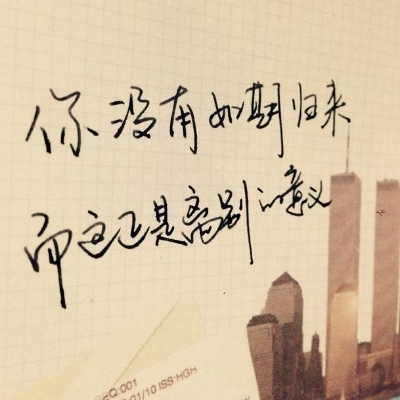 你没有如期归来
而这正是离别的意义
EQ:001
01/10 ISS:HGH